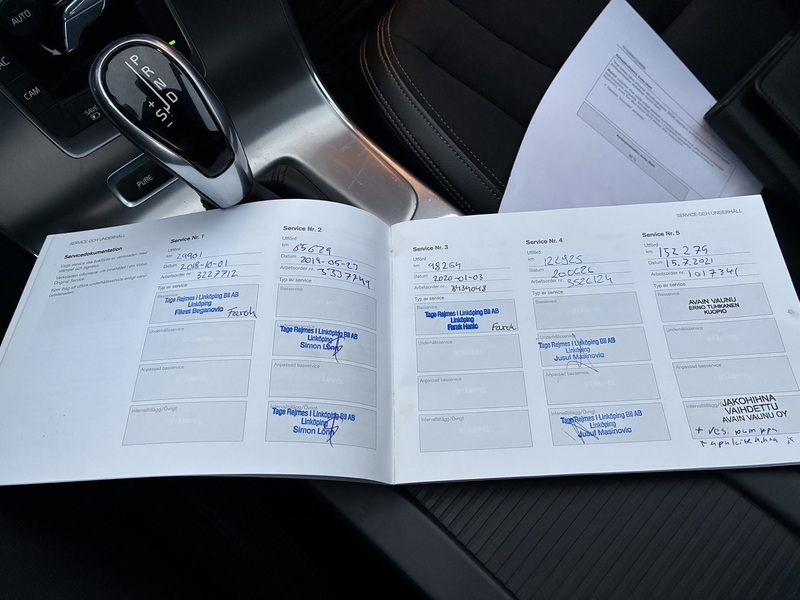 AUTO
AC
CAM
SAVE
P
R
N
D
+
S
-
PURE
SERVICE OCH UNDERHÅLL
Servicedokumentation
Service Nr. 1
Utförd
km 29901
Datum 2018-10-01
Arbetsorder nr. 3227712
Typ av service
Basservice
Tage Rejmes i Linköping Bil AB
Linköping
Fikret Beganovic
Farok
Underhållsservice
Anpassad basservice
Intervalltillägg/Övrigt
Service Nr. 2
Utförd
km 65629
Datum 2019-05-27
Arbetsorder nr. 3337744
Typ av service
Basservice
Underhållsservice
Tage Rejmes i Linköping Bil AB
Linköping
Simon Lönn
Anpassad basservice
Intervalltillägg/Övrigt
Tage Rejmes i Linköping Bil AB
Linköping
Simon Lönn
SERVICE OCH UNDERHÅLL
Service Nr. 3
Utförd
km 98264
Datum 2020-01-03
Arbetsorder nr. 3434048
Typ av service
Basservice
Tage Rejmes i Linköping Bil AB
Linköping
Faruk Hasic
Farok
Underhållsservice
Anpassad basservice
Intervalltillägg/Övrigt
Service Nr. 4
Utförd
km 126925
Datum 200626
Arbetsorder nr. 3526124
Typ av service
Basservice
Underhållsservice
Tage Rejmes i Linköping Bil AB
Linköping
Jusuf Masinovic
Anpassad basservice
Intervalltillägg/Övrigt
Tage Rejmes i Linköping Bil AB
Linköping
Jusuf Masinovic
Service Nr. 5
Utförd
km 152 279
Datum 15.7.2021
Arbetsorder nr. 1017341
Typ av service
Basservice
AVAIN VAUNU
ERNO TUHKANEN
KUOPIO
Underhållsservice
Anpassad basservice
Intervalltillägg/Övrigt
JAKOHIHNA
VAIHDETTU
AVAIN VAUNU OY
+ ves. pumppu
+ apulaitehihna ja